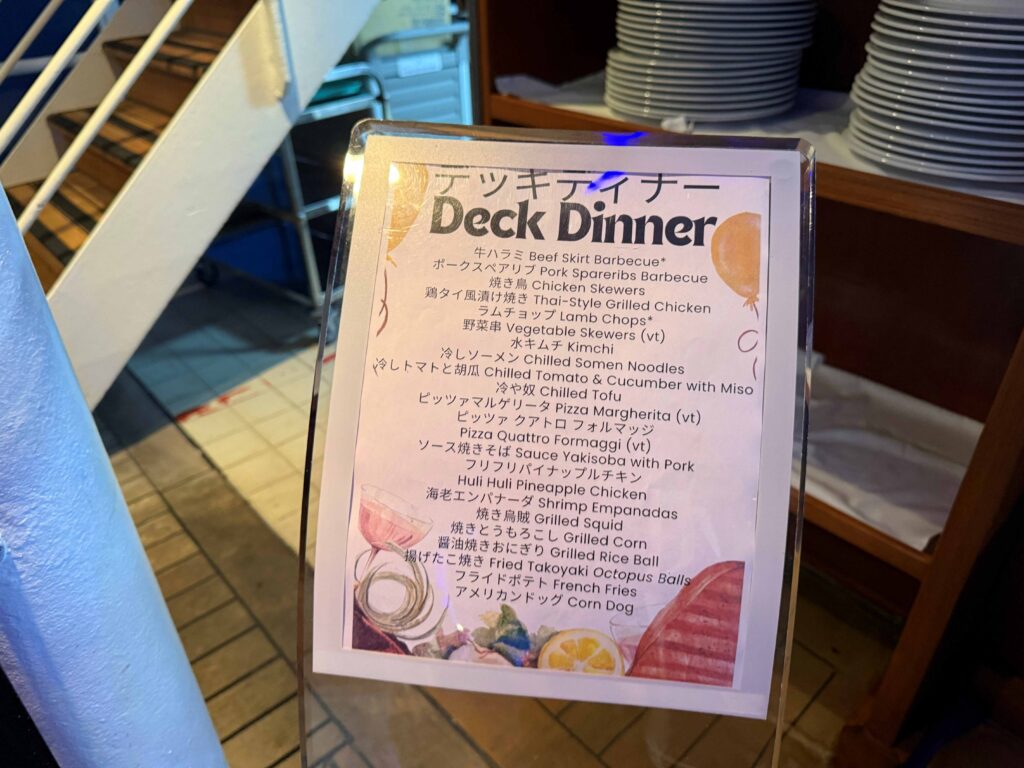 デッキディナー
Deck Dinner
牛ハラミ Beef Skirt Barbecue*
ポークスペアリブ Pork Spareribs Barbecue
焼き鳥 Chicken Skewers
鶏タイ風漬け焼き Thai-Style Grilled Chicken
ラムチョップ Lamb Chops*
野菜串 Vegetable Skewers (vt)
水キムチ Kimchi
冷しソーメン Chilled Somen Noodles
冷しトマトと胡瓜 Chilled Tomato & Cucumber with Miso
冷や奴 Chilled Tofu
ピッツァマルゲリータ Pizza Margherita (vt)
ピッツァ クアトロ フォルマッジ
Pizza Quattro Formaggi (vt)
ソース焼きそば Sauce Yakisoba with Pork
フリフリパイナップルチキン
Huli Huli Pineapple Chicken
海老エンパナーダ Shrimp Empanadas
焼き烏賊 Grilled Squid
焼きとうもろこし Grilled Corn
醤油焼きおにぎり Grilled Rice Ball
揚げたこ焼き Fried Takoyaki Octopus Balls
フライドポテト French Fries
アメリカンドッグ Corn Dog